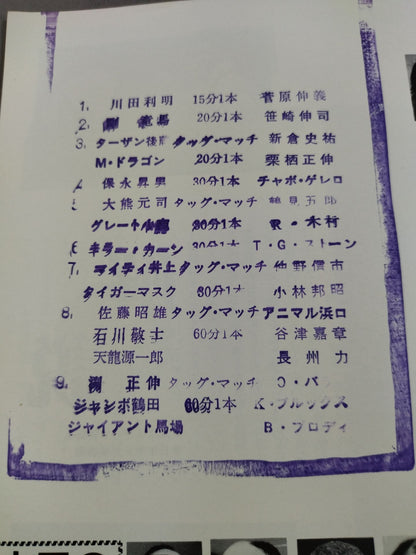 1, 川田利明 15分1本 菅原伸義
2, 剛 竜馬 20分1本 笹崎伸司
3, ターザン後藤 タッグ・マッチ 新倉史祐
M・ドラゴン 20分1本 栗栖正伸
4 保永昇男 30分1本 チャボ・ゲレロ
5 大熊元司 タッグ・マッチ 鶴見五郎
グレート小鹿 30分1本 R・木村
6 キラー・カーン 30分1本 T・G・ストーン
7, マイティ井上 タッグ・マッチ 仲野信市
タイガーマスク 30分1本 小林邦昭
8, 佐藤昭雄 タッグ・マッチ アニマル浜口
石川敬士 60分1本 谷津嘉章
天龍源一郎 長州 力
9, 渕 正伸 タッグ・マッチ
ジャンボ鶴田 60分1本 K・ブルックス
ジャイアント馬場 B・ブロディ